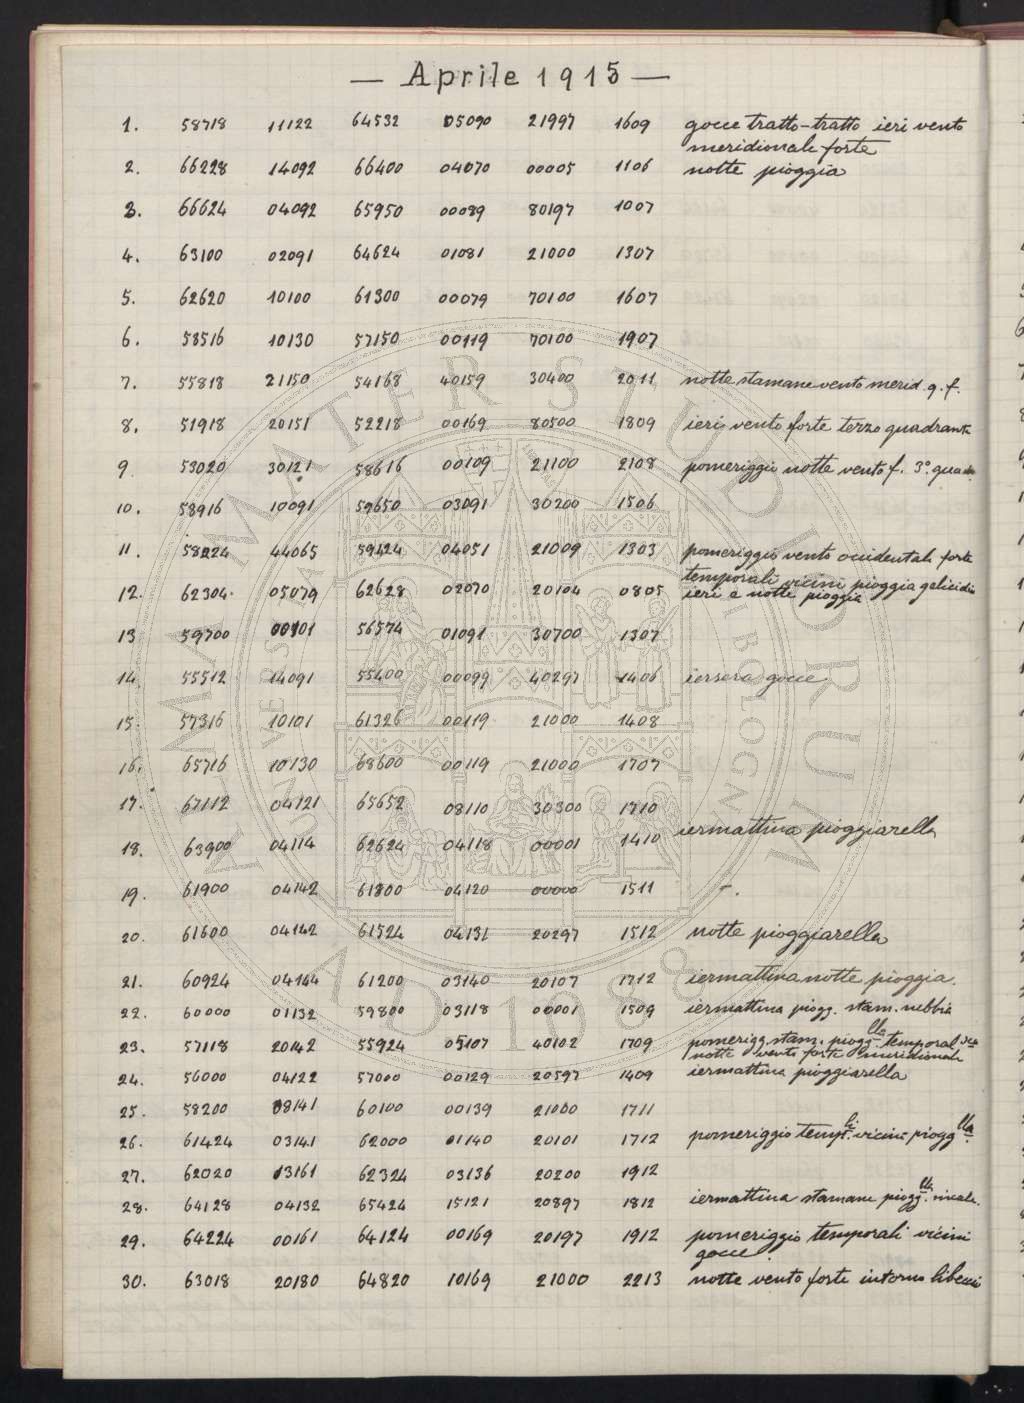 — Aprile 1915 —
1. 58718 11122 64532 05090 21997 1609 gocce tratto-tratto ieri vento
meridionale forte
2. 66228 14092 66400 04070 00005 1106 notte pioggia
3. 66624 04092 65950 00089 80197 1007
4. 63100 02091 64624 01081 21000 1307
5. 62620 10100 61300 00079 70100 1607
6. 58516 10130 57150 00119 70100 1907
7. 55818 21150 54168 40159 30400 2011 notte stamane vento merid. q. f.
8. 51918 20151 52218 00169 80500 1809 ieri vento forte terzo quadrante
9. 53020 30121 58616 00109 21100 2108 pomeriggio notte vento f. 3º. quad.
10. 58916 10091 59650 03091 30200 1506
11. 58224 44065 59424 04051 21009 1303 pomeriggio vento occidentale forte
temporali vicini pioggia gelicidio
12. 62304. 05079 62628 02070 20104 0805 ieri e notte pioggia
13. 59700 00101 56574 01091 30700 1307
14. 55512 14091 55400 00099 40297 1406 iersera gocce
15. 57316 10101 61326 00119 21000 1408
16. 65716 10130 68600 00119 21000 1707
17. 67112 04121 65652 08110 30300 1710
iermattina pioggiarella
18. 63900 04114 62624 04118 00001 1410
19. 61900 04142 61800 04120 00000 1511 –.
20. 61600 04142 61524 04131 20297 1512 notte pioggiarella
21. 60924 04144 61200 03140 20107 1712 iermattina notte pioggia.
22. 60000 01132 59800 03118 00001 1509 iermattina piogg. stam. nebbia
23. 57118 20142 55924 05107 40102 1709 pomerigg. stam. piogg.lla temporal.sca
notte vento forte meridionale
24. 56000 04122 57000 00129 20597 1409 iermattina pioggiarella
25. 58200 08141 60100 00139 21000 1711
26. 61424 03141 62000 01140 20101 1712 pomeriggio temp.li vicini piogg.lla
27. 62020 13161 62324 03136 20200 1912
28. 64128 04132 65424 15121 20897 1812 iermattina stamane piogg.lla
29. 64224 00161 64124 00169 20197 1912 pomeriggio temporali vicini
gocce.
30. 63018 20180 64820 10169 21000 2213 notte vento forte intorno libeccio
ALMA MATER STUDIORUM
A.D. 1088